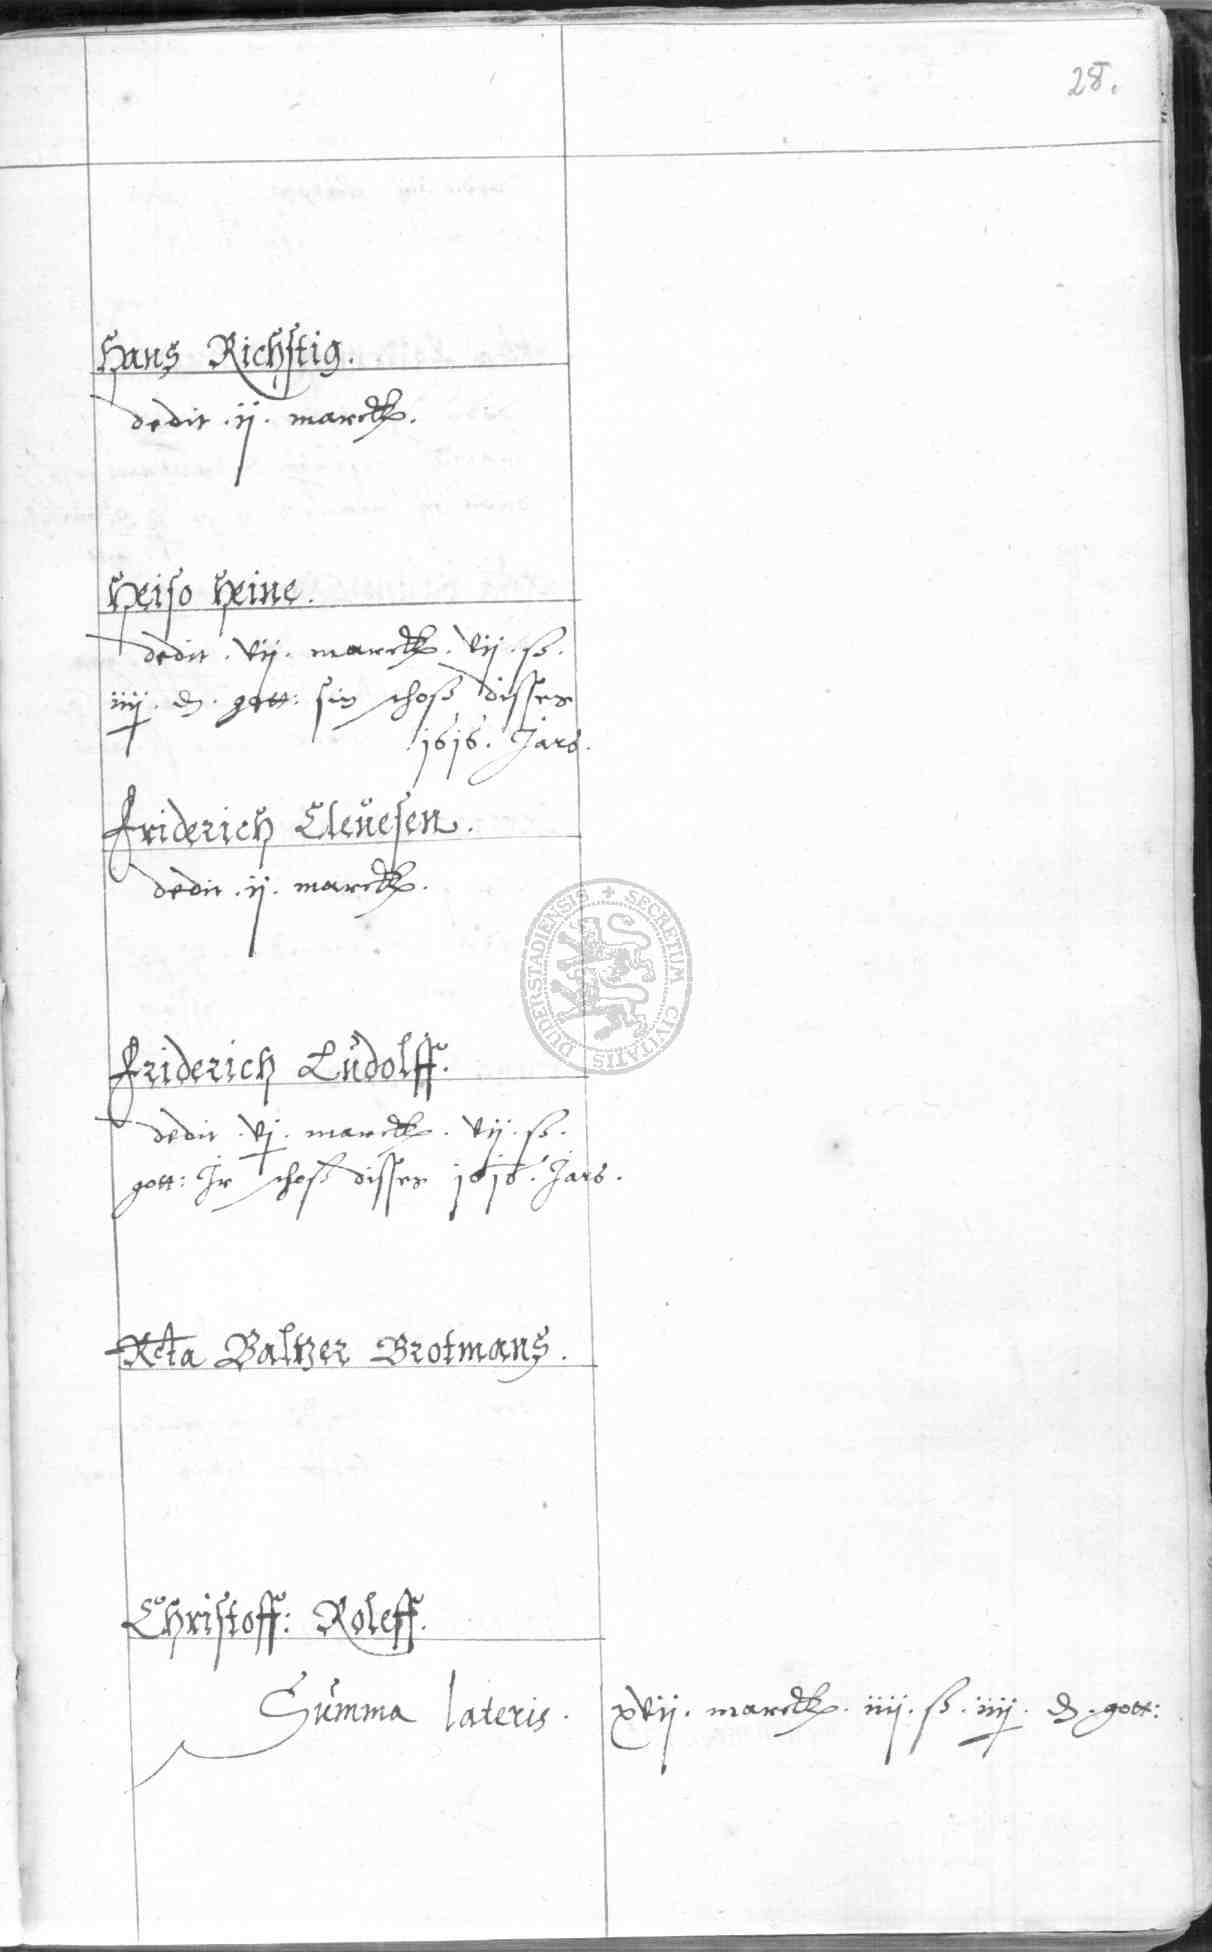 28.
Hans Richstig.
dedit . ij . marck.
Heiso Heine.
dedit . vij . marck . vij . ß .
iiij . d . gott: sin schoß disses
1616 . Jars .
Friderich Clevesen .
dedit . ij . marck .
Friderich Ludolff .
dedit . vj . marck . vij . ß .
gott: Ir schoß disses 1616 . Jars .
Rcta Baltzer Brotmans .
Christoff: Roleff .
Summa lateris . xvij . marck . iiij . ß . iiij . d . gott:
SECRETUM CIVITATIS DUDERSTADIENSIS